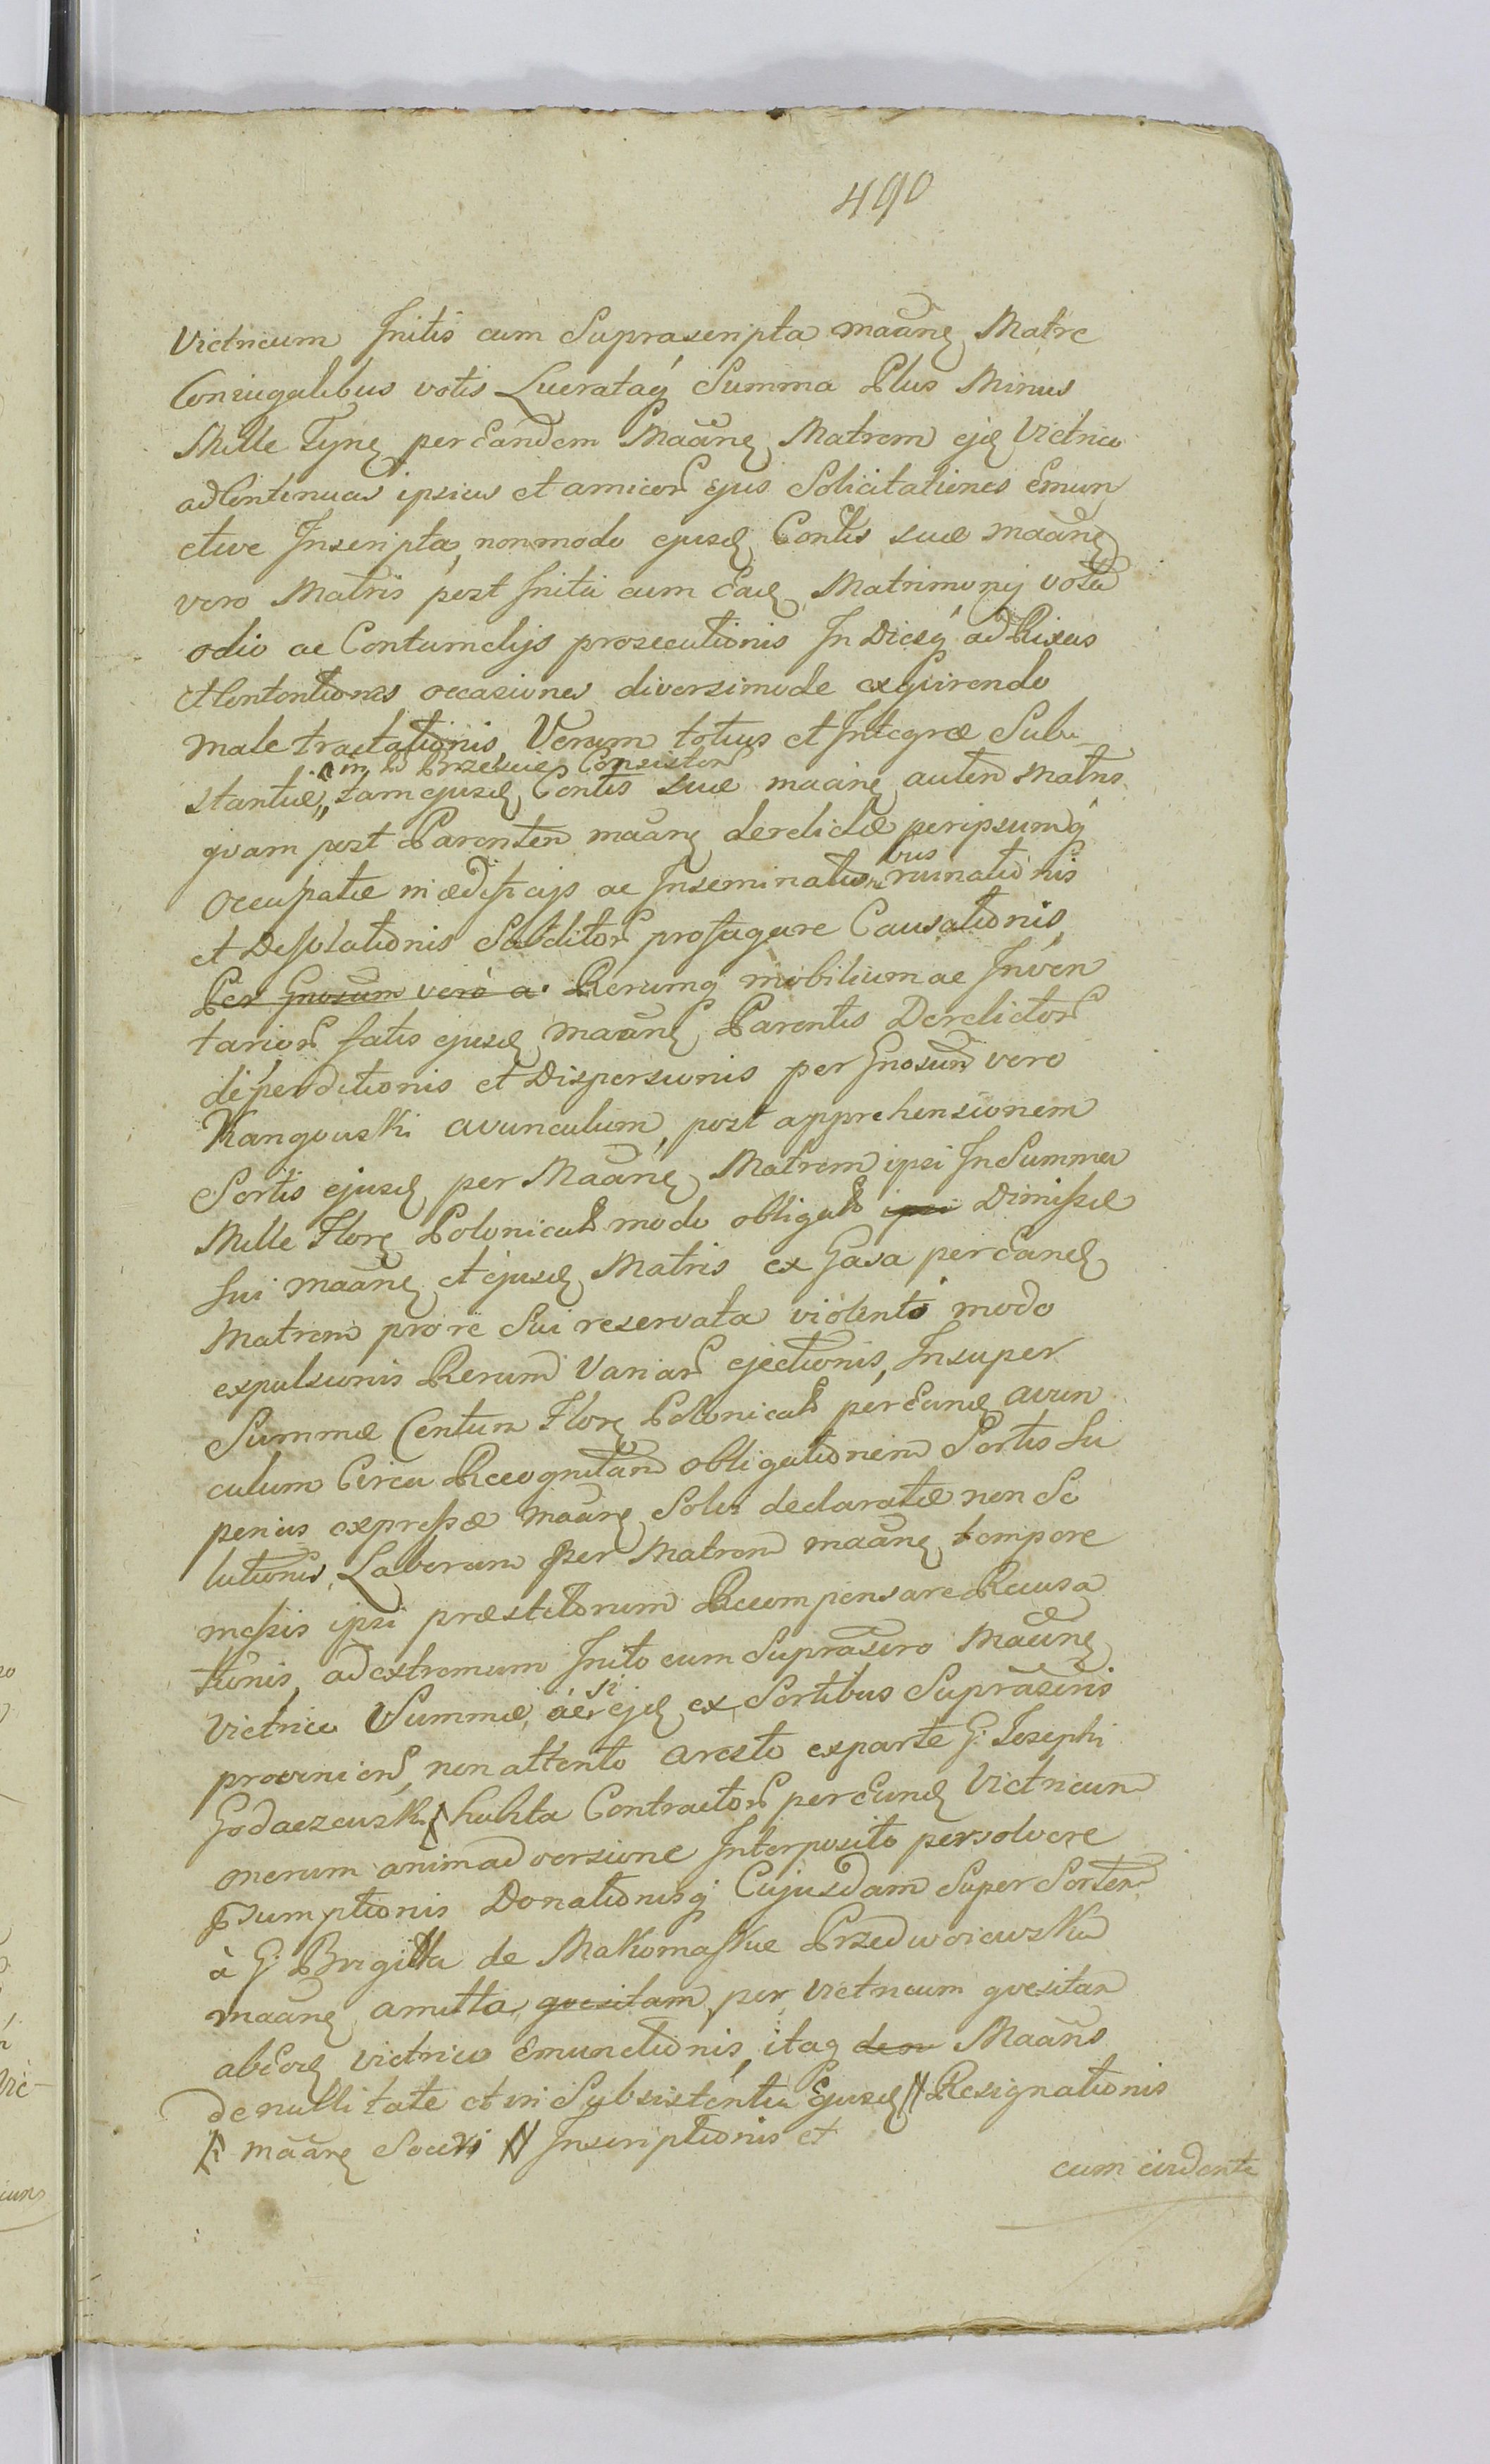 490
Victricum Initis cum Suprascripta maãnę Matre
Coniugalibus votis Lucrataq Summa Plus Minus
Mille Tynę per Eandem Maãnę Matrem eję Victrico
ad Continuas ipsius et amicor ejus Solicitationes Emun
ctive Inscripta, non modo ejusd Contis suæ maãnę
vero Matris post Inita cum Ead Matrimonij vota
odio ac Contumelijs prosecutionis In Diesq ad Rixas
et Contentiones occasiones diversimode exquirendo
male tractationis, Verum totius et Integræ Sub
in Brzescie Consisten
stantiæ, tam ejusd Contis suæ maãnę autem Matris
qvam post Parentem maãnę derelictæ per ipsumq
bus
Occupatæ in ædificijs ac Inseminationi ruinationis
et Desolationis Subditor profugare Causationis,
Per Gnosum vero a Rerumq mobilium ac Inven
tarior fatis ejusd maãnę Parentis Derelictor
deperditionis et Dispersionis per Gnosum vero
avunculum, post apprehensionem
Sortis ejusd per Maãnę Matrem ipsi In Summa
Mille Flore Polonical modo obligat ipsi Dimissæ
sui maãnę et ejusd Matris ex Gasa per Eand
Matrem pro re Sui reservata violento modo
expulsionis Rerum Variar ejectionis, Insuper
Summæ Centum Flore Polonical per Eund avun
culum Circa Recognitam obligationem Sortis Su
perius expressæ maãnę Solvi declaratæ non So
lutionis, Laborum per Matrem maãnę tempore
messis ipsi præstitorum Recompensare Recusa
tionis, ad extremum Inito cum Suprascro Maãnę
si
Victrico Summæ, ac ejd ex Sortibus Suprascris
provenien, non attento aresto ex parte G. Josephi
Godaczewski habita Contractor per Eund Victricum
onerum animadversione Interposito persolvere
psumptionis Donationisq Cujusdam Super Sortem
à G. Brigitta de Makomaskie Przedwoiewska
maãnę amitta qvesitam per Victricum qvesitam
ab Eod victrico Emunctionis, itaq Maãns
de nullitate et in Subsistentia Ejusd // Resignationis
maãnę Soceri // Inscriptionis et
cum evidente